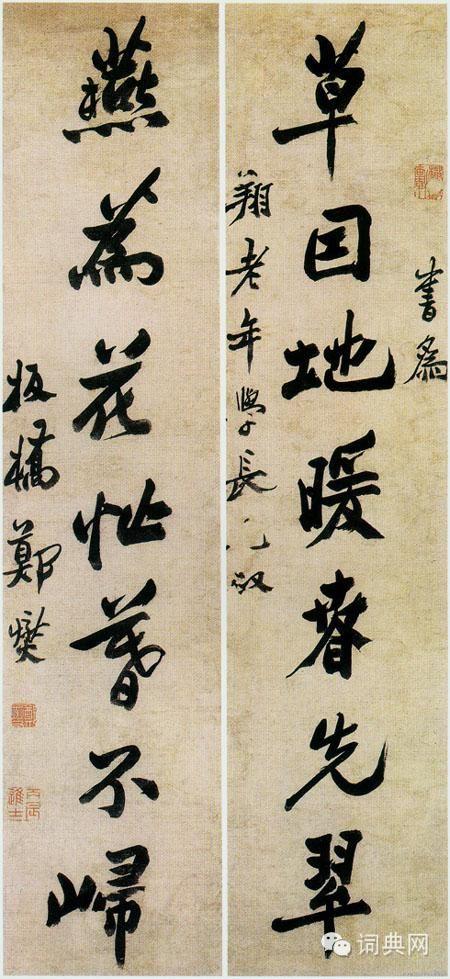 書為
草囙地暖春先翠
翔老年學長兄政
燕為花忙暮不歸
板橋鄭燮
丙辰進士
词典网